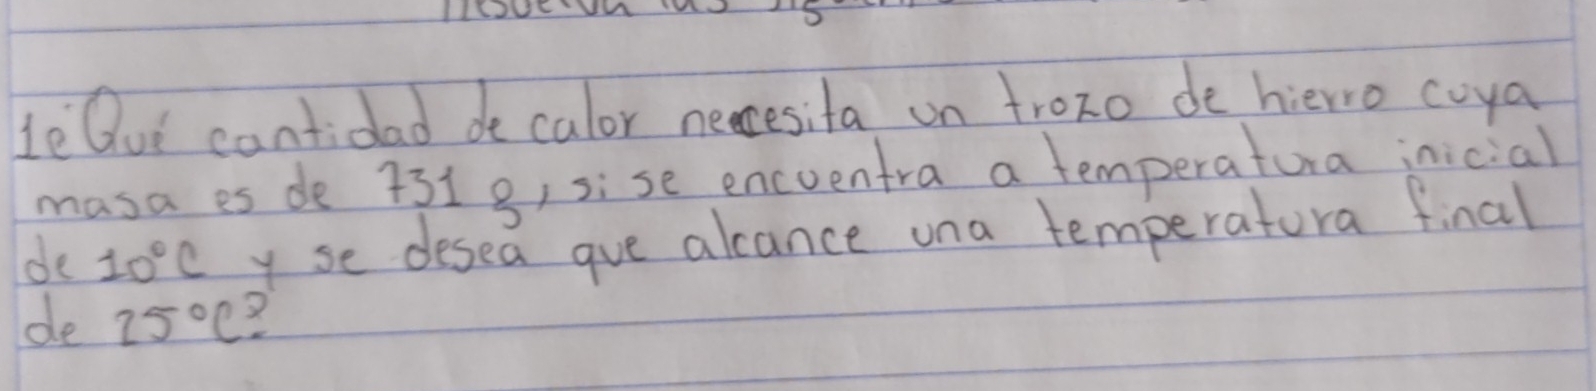 las
1e Qué cantidad de calor necesita un trozo de hierro cuya
masa es de 731 g, si se encuentra a temperatura inicial
de 10°C y se desea que alcance una temperatura final
de 25°C?